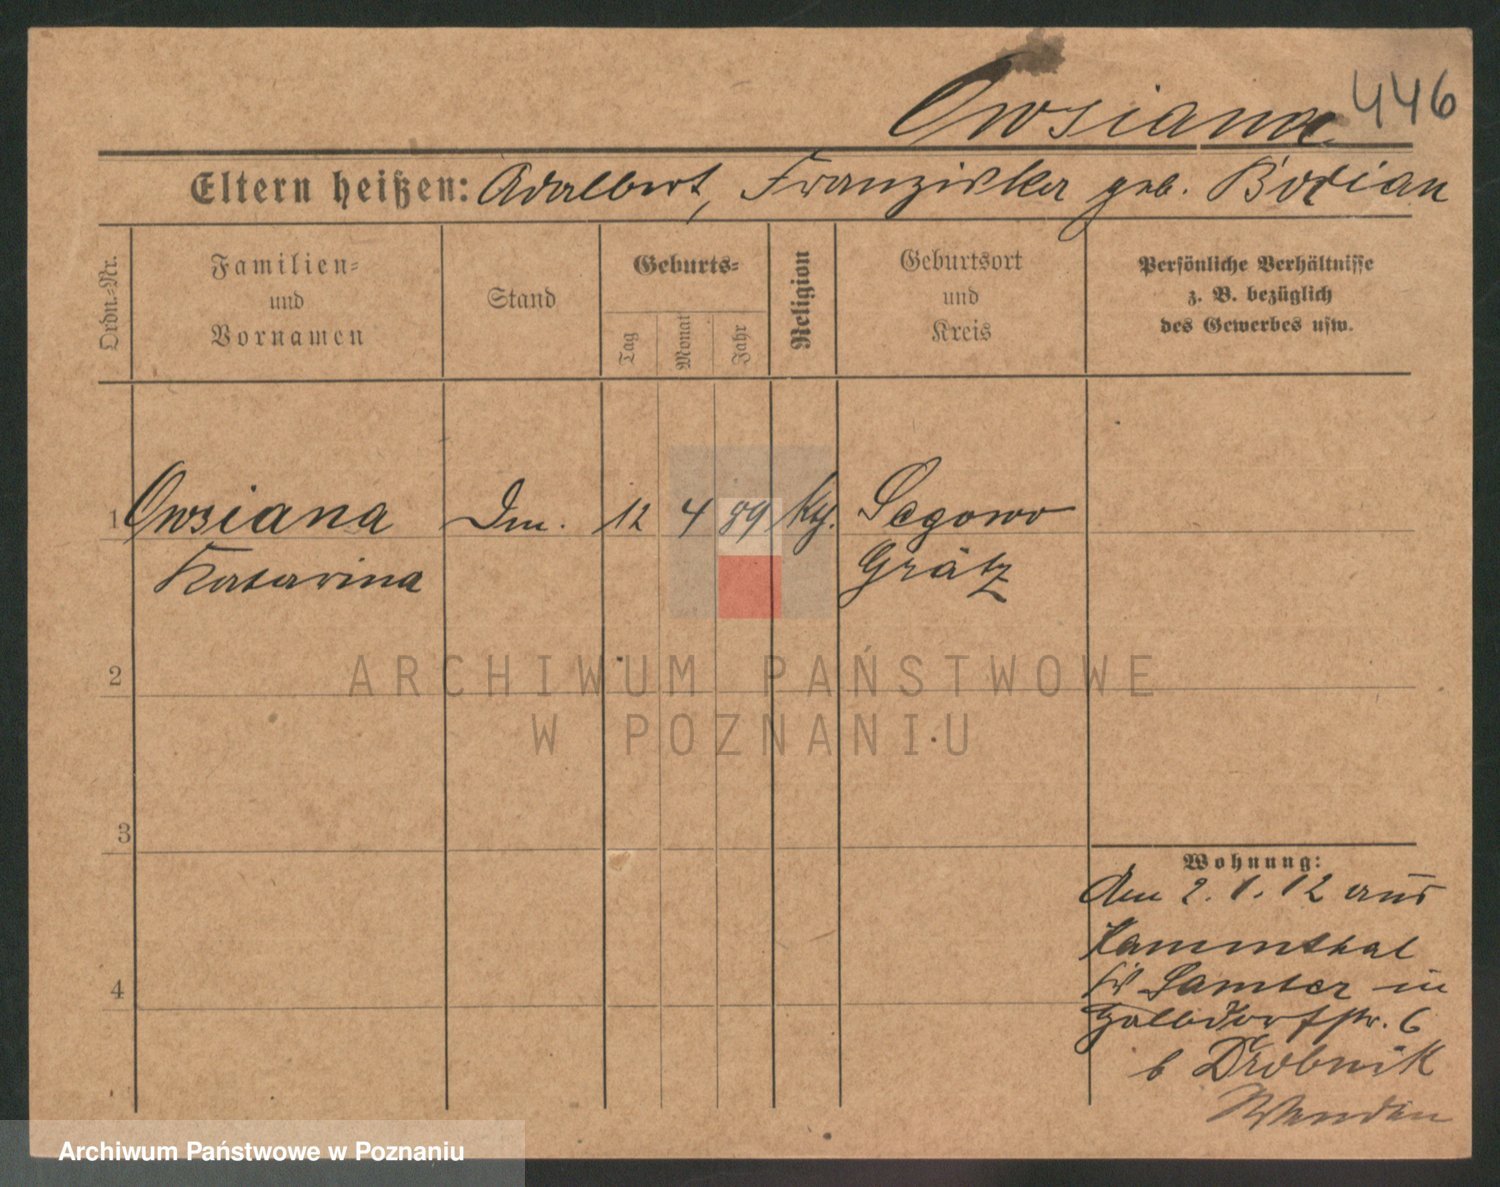 Owsiana 446
Eltern heißen: Adalbert, Franziska geb. Bocian
Ordn.-Nr.
Familien-
und
Vornamen
Stand
Geburts-
Tag
Monat
Jahr
Religion
Geburtsort
und
Kreis
Persönliche Verhältnisse
z. B. bezüglich
des Gewerbes usw.
1 Owsiana 12 4 89 kth. Segowo
Katarina Grätz
2
3
4
Wohnung:
Am 2. 1. 12 aus
Kammthal
Samter in
str. 6
b Drobnik
ARCHIWUM PAŃSTWOWE
W POZNANIU
Archiwum Państwowe w Poznaniu